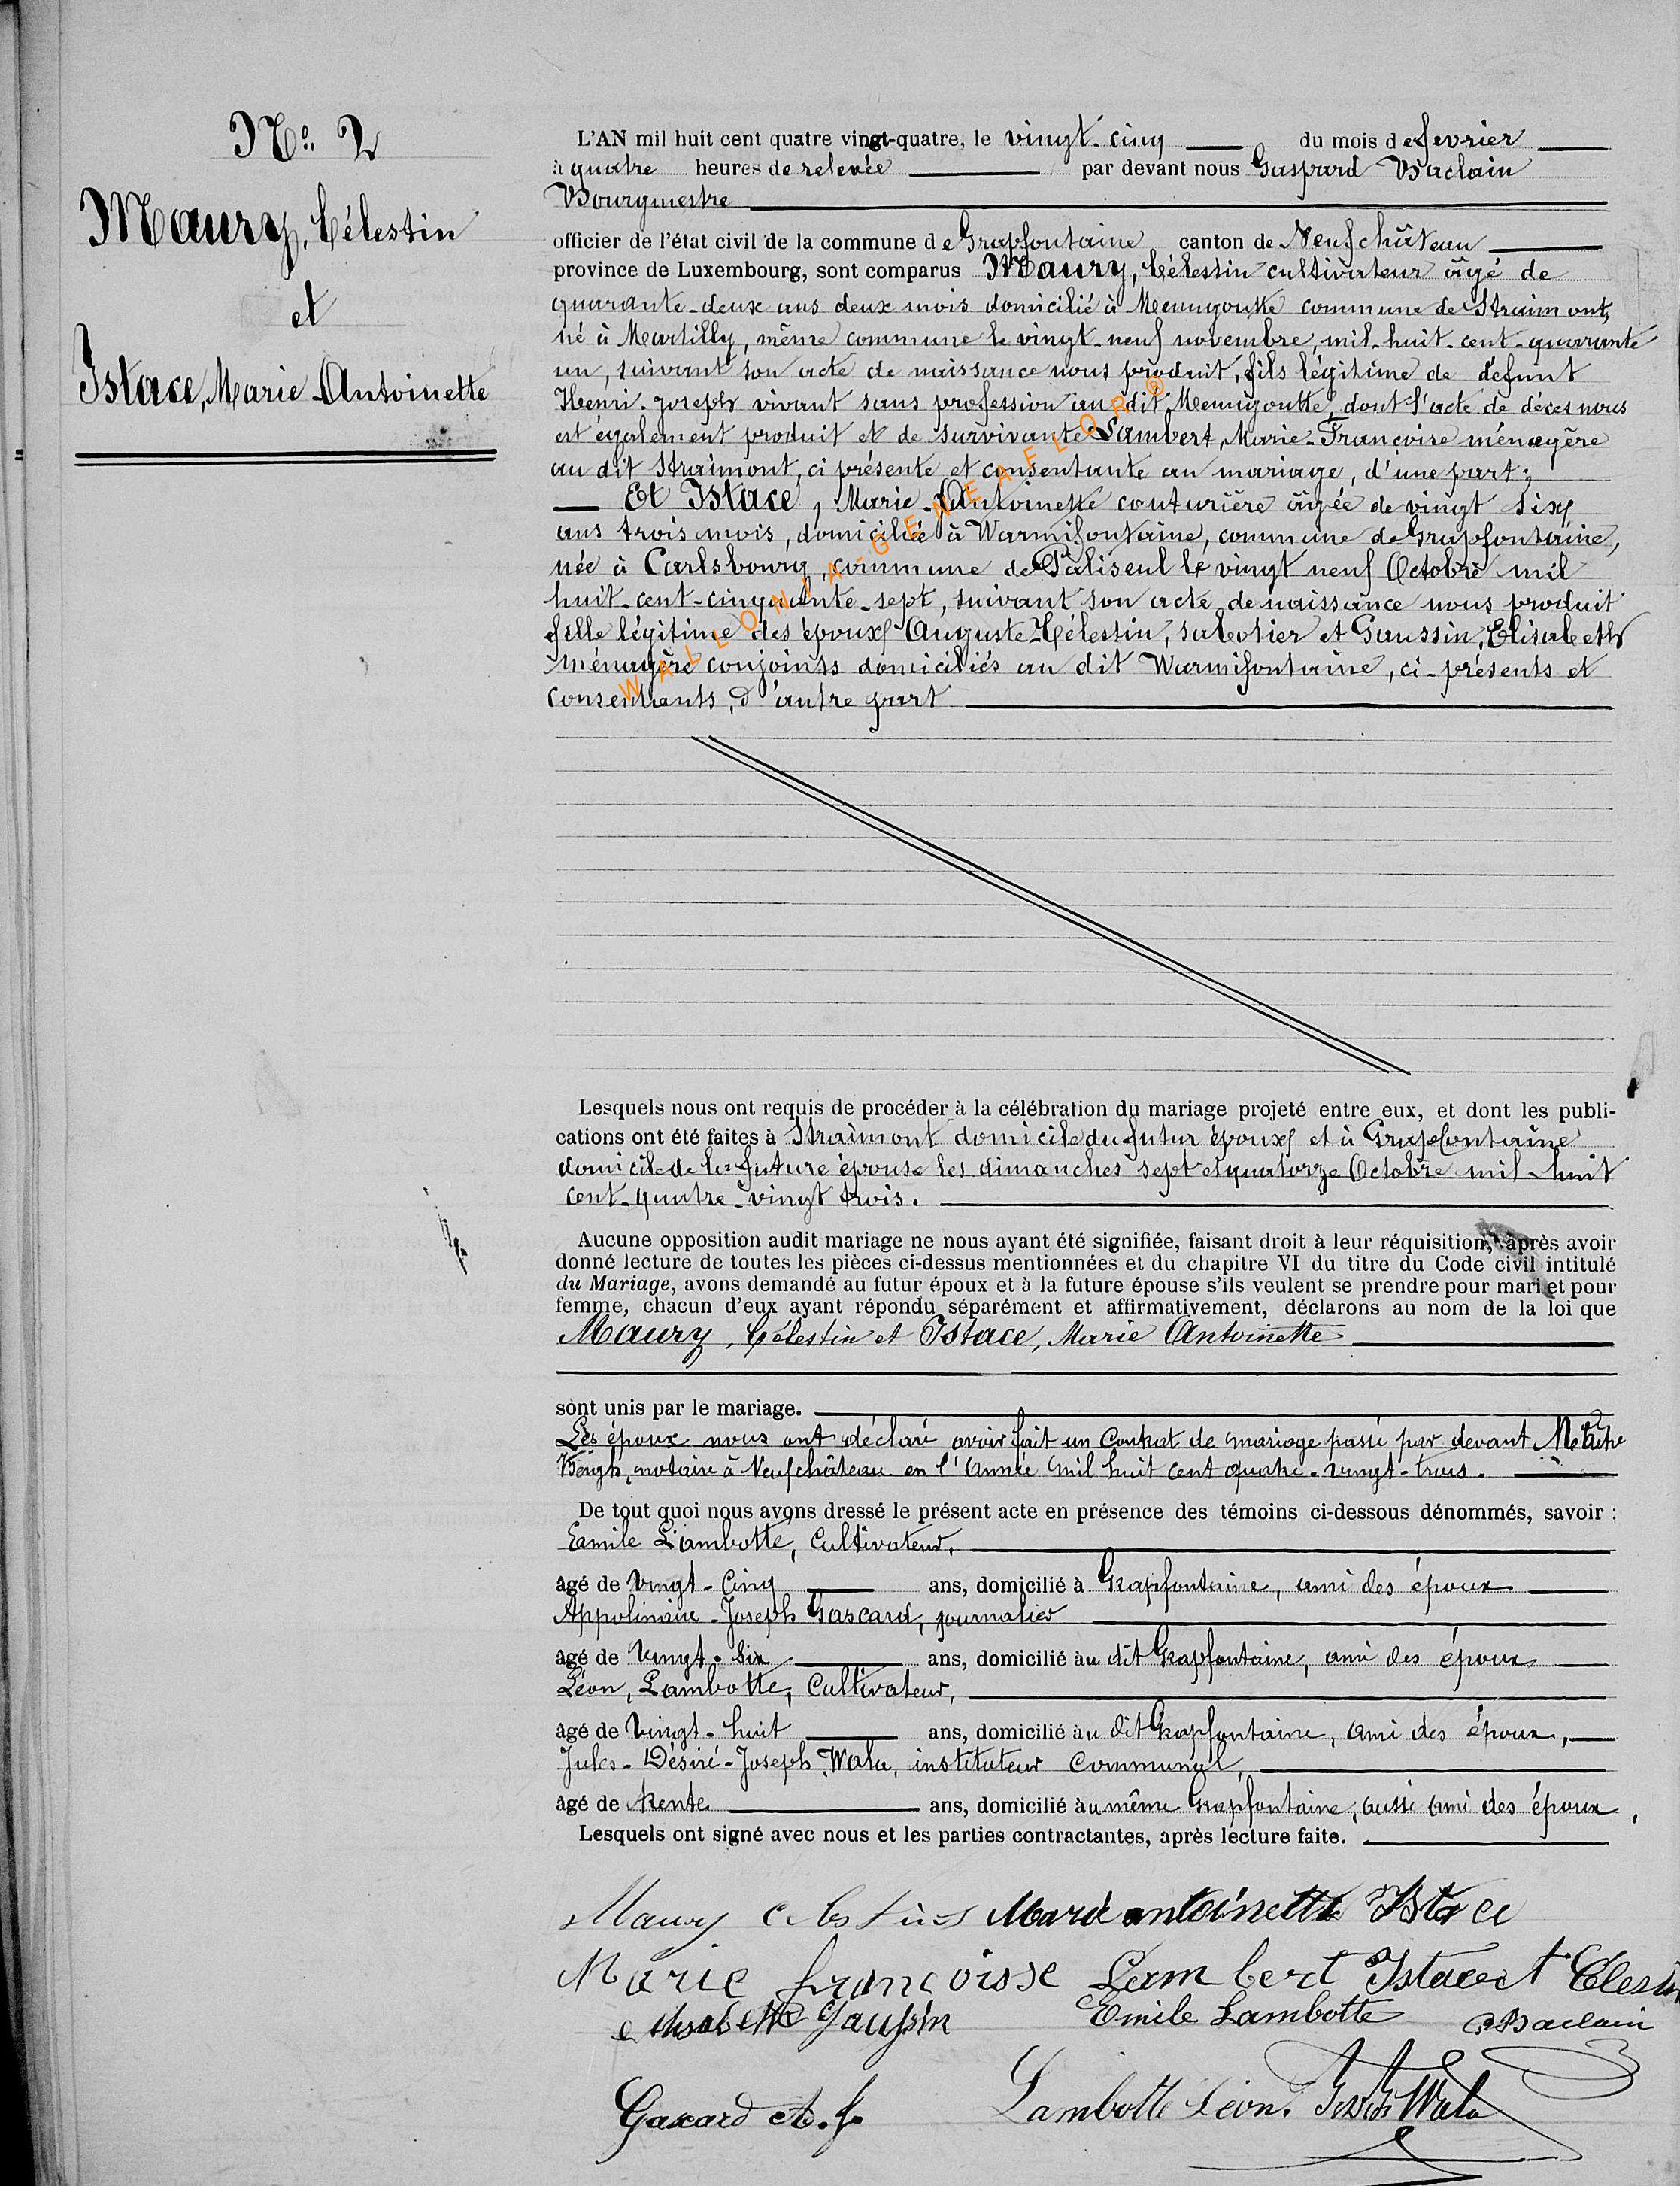 N° 2
Maury, Célestin
et
Istace, Marie Antoinette
L'AN mil huit cent quatre vingt-quatre, le vingt-cinq du mois de fevrier
à quatre heures de relevée par devant nous Gaspard Baclain
Bourgmestre
officier de l'état civil de la commune de Grapfontaine canton de Neufchâteau
province de Luxembourg, sont comparus Maury, Célestin cultivateur âgé de
quarante-deux ans deux mois domicilié à Menugoutte commune de Straimont,
né à Martilly, même commune le vingt-neuf novembre mil-huit-cent-quarante
un, suivant son acte de naissance nous produit, fils légitime de défunt
Henri-Joseph vivant sans profession au dit Menugoutte, dont l'acte de décès nous
est également produit et de survivante Lambert, Marie-Françoise ménagère
au dit Straimont, ci présente et consentante au mariage, d'une part;
Et Istace, Marie-Antoinette couturière âgée de vingt six
ans trois mois, domiciliée à Warmifontaine, commune de Grapfontaine,
née à Carlsbourg, commune de Paliseul le vingt neuf Octobre mil
huit-cent-cinquante-sept, suivant son acte de naissance nous produit
fille légitime des époux Auguste-Célestin, sabotier et Gaussin, Elisabeth
ménagère conjoints domiciliés au dit Warmifontaine, ci-présents et
consentants, d'autre part
WALLONIA-GENEAFLOR ®
Lesquels nous ont requis de procéder à la célébration du mariage projeté entre eux, et dont les publi-
cations ont été faites à Straimont domicile du futur époux et à Grapfontaine
domicile de la future épouse les dimanches sept et quatorze Octobre mil-huit
cent-quatre-vingt trois.
Aucune opposition audit mariage ne nous ayant été signifiée, faisant droit à leur réquisition, après avoir
donné lecture de toutes les pièces ci-dessus mentionnées et du chapitre VI du titre du Code civil intitulé
du Mariage, avons demandé au futur époux et à la future épouse s'ils veulent se prendre pour mari et pour
femme, chacun d'eux ayant répondu séparément et affirmativement, déclarons au nom de la loi que
Maury, Célestin et Istace, Marie Antoinette
sont unis par le mariage.
Les époux nous ont déclaré avoir fait un Contrat de mariage passé par devant Maître
notaire à Neufchâteau en l'année mil huit cent quatre-vingt-trois.
De tout quoi nous avons dressé le présent acte en présence des témoins ci-dessous dénommés, savoir :
Emile Lambotte, Cultivateur,
âgé de vingt-cinq ans, domicilié à Grapfontaine, ami des époux
Appolinaire-Joseph Gascard, journalier
âgé de vingt-six ans, domicilié au dit Grapfontaine, ami des époux
Léon, Lambotte, Cultivateur,
âgé de vingt-huit ans, domicilié au dit Grapfontaine, ami des époux,
Jules-Désiré-Joseph Wala, instituteur Communal,
âgé de trente ans, domicilié au même Grapfontaine, aussi ami des époux,
Lesquels ont signé avec nous et les parties contractantes, après lecture faite.
Maury Celestin Marie antoinette Istace
Marie françoisse Lambert Istace A Célestin
elisabethe Gaussin Emile Lambotte G Baclain
Gascard A. J. Lambotte Léon. Wala